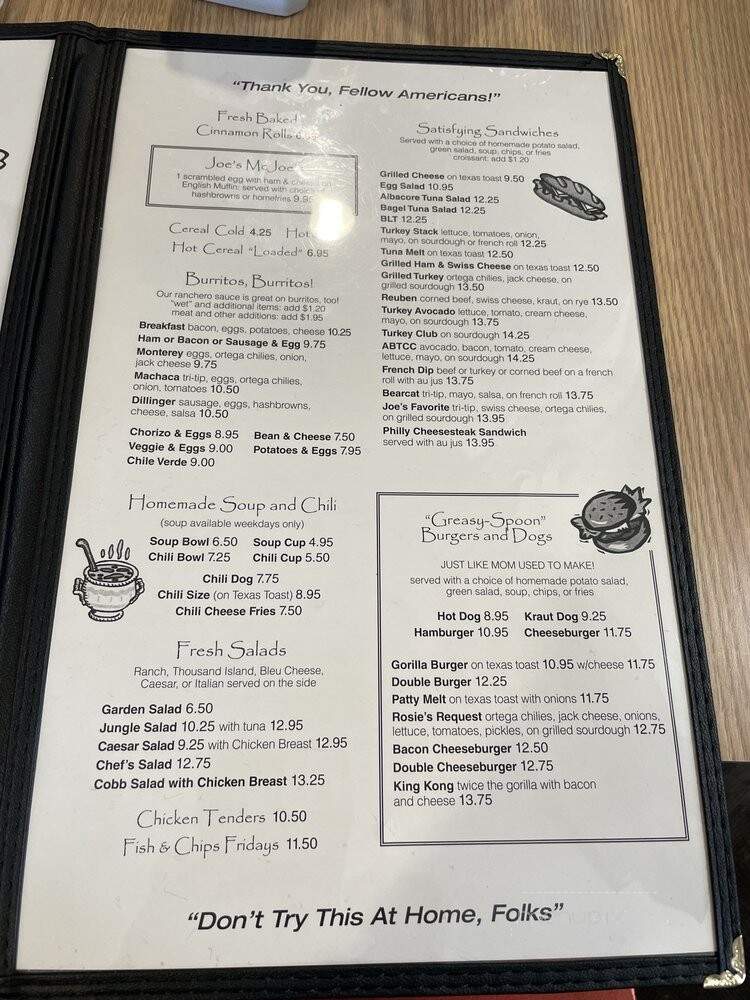 "Thank You, Fellow Americans!"
Fresh Baked
Cinnamon Rolls
Joe's McJoe
1 scrambled egg with ham & cheese on
English Muffin: served with choice of
hashbrowns or homefries 9.95
Cereal Cold 4.25 Hot
Hot Cereal "Loaded" 6.95
Burritos, Burritos!
Our ranchero sauce is great on burritos, too!
"wet" and additional items: add $1.20
meat and other additions: add $1.95
Breakfast bacon, eggs, potatoes, cheese 10.25
Ham or Bacon or Sausage & Egg 9.75
Monterey eggs, ortega chilies, onion,
jack cheese 9.75
Machaca tri-tip, eggs, ortega chilies,
onion, tomatoes 10.50
Dillinger sausage, eggs, hashbrowns,
cheese, salsa 10.50
Chorizo & Eggs 8.95 Bean & Cheese 7.50
Veggie & Eggs 9.00 Potatoes & Eggs 7.95
Chile Verde 9.00
Homemade Soup and Chili
(soup available weekdays only)
Soup Bowl 6.50 Soup Cup 4.95
Chili Bowl 7.25 Chili Cup 5.50
Chili Dog 7.75
Chili Size (on Texas Toast) 8.95
Chili Cheese Fries 7.50
Fresh Salads
Ranch, Thousand Island, Bleu Cheese,
Caesar, or Italian served on the side
Garden Salad 6.50
Jungle Salad 10.25 with tuna 12.95
Caesar Salad 9.25 with Chicken Breast 12.95
Chef's Salad 12.75
Cobb Salad with Chicken Breast 13.25
Chicken Tenders 10.50
Fish & Chips Fridays 11.50
Satisfying Sandwiches
Served with a choice of homemade potato salad,
green salad, soup, chips, or fries
croissant: add $1.20
Grilled Cheese on texas toast 9.50
Egg Salad 10.95
Albacore Tuna Salad 12.25
Bagel Tuna Salad 12.25
BLT 12.25
Turkey Stack lettuce, tomatoes, onion,
mayo, on sourdough or french roll 12.25
Tuna Melt on texas toast 12.50
Grilled Ham & Swiss Cheese on texas toast 12.50
Grilled Turkey ortega chilies, jack cheese, on
grilled sourdough 13.50
Reuben corned beef, swiss cheese, kraut, on rye 13.50
Turkey Avocado lettuce, tomato, cream cheese,
mayo, on sourdough 13.75
Turkey Club on sourdough 14.25
ABTCC avocado, bacon, tomato, cream cheese,
lettuce, mayo, on sourdough 14.25
French Dip beef or turkey or corned beef on a french
roll with au jus 13.75
Bearcat tri-tip, mayo, salsa, on french roll 13.75
Joe's Favorite tri-tip, swiss cheese, ortega chilies,
on grilled sourdough 13.95
Philly Cheesesteak Sandwich
served with au jus 13.95
"Greasy-Spoon"
Burgers and Dogs
JUST LIKE MOM USED TO MAKE!
served with a choice of homemade potato salad,
green salad, soup, chips, or fries
Hot Dog 8.95 Kraut Dog 9.25
Hamburger 10.95 Cheeseburger 11.75
Gorilla Burger on texas toast 10.95 w/cheese 11.75
Double Burger 12.25
Patty Melt on texas toast with onions 11.75
Rosie's Request ortega chilies, jack cheese, onions,
lettuce, tomatoes, pickles, on grilled sourdough 12.75
Bacon Cheeseburger 12.50
Double Cheeseburger 12.75
King Kong twice the gorilla with bacon
and cheese 13.75
"Don't Try This At Home, Folks"